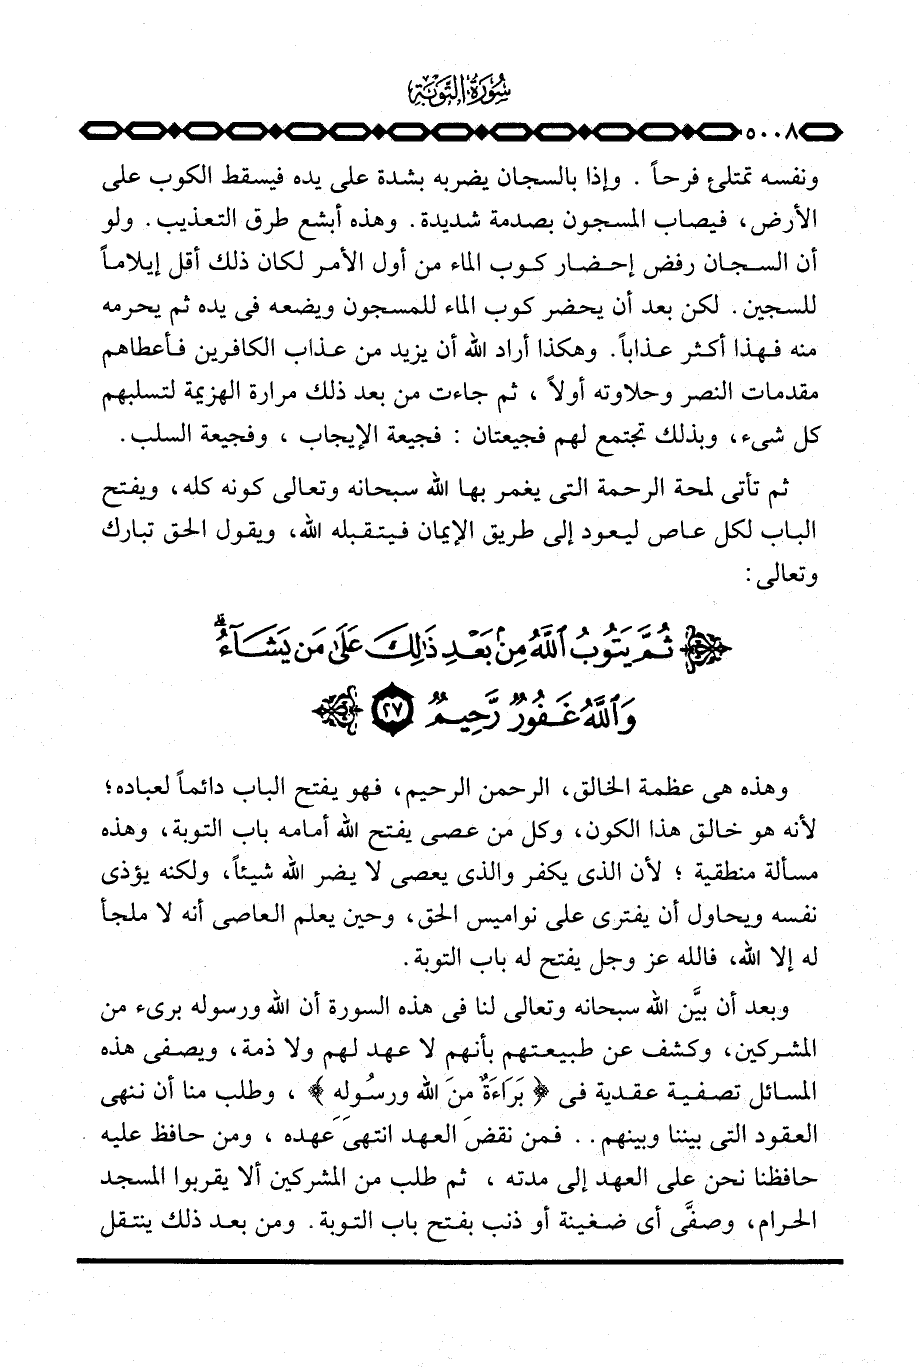 سُورَةُ التَّوْبَةِ
٥٠٠٨
ونفسه تمتلئ فرحاً . وإذا بالسجان يضربه بشدة على يده فيسقط الكوب على
الأرض، فيصاب المسجون بصدمة شديدة. وهذه أبشع طرق التعذيب. ولو
أن السجان رفض إحضار كوب الماء من أول الأمر لكان ذلك أقل إيلاماً
للسجين. لكن بعد أن يحضر كوب الماء للمسجون ويضعه فى يده ثم يحرمه
منه فهذا أكثر عذاباً. وهكذا أراد الله أن يزيد من عذاب الكافرين فأعطاهم
مقدمات النصر وحلاوته أولاً ، ثم جاءت من بعد ذلك مرارة الهزيمة لتسلبهم
كل شىء، وبذلك تجتمع لهم فجيعتان : فجيعة الإيجاب ، وفجيعة السلب.
ثم تأتى لمحة الرحمة التى يغمر بها الله سبحانه وتعالى كونه كله، ويفتح
الباب لكل عاص ليعود إلى طريق الإيمان فيتقبله الله، ويقول الحق تبارك
وتعالى:
﴿ ثُمَّ يَتُوبُ ٱللَّهُ مِنۢ بَعْدِ ذَٰلِكَ عَلَىٰ مَن يَشَآءُۗ
وَٱللَّهُ غَفُورٌ رَّحِيمٌ ٢٧ ﴾
وهذه هى عظمة الخالق، الرحمن الرحيم، فهو يفتح الباب دائماً لعباده؛
لأنه هو خالق هذا الكون، وكل من عصى يفتح الله أمامه باب التوبة، وهذه
مسألة منطقية ؛ لأن الذى يكفر والذى يعصى لا يضر الله شيئاً، ولكنه يؤذى
نفسه ويحاول أن يفترى على نواميس الحق، وحين يعلم العاصى أنه لا ملجأ
له إلا الله، فالله عز وجل يفتح له باب التوبة.
وبعد أن بيَّن الله سبحانه وتعالى لنا فى هذه السورة أن الله ورسوله برىء من
المشركين، وكشف عن طبيعتهم بأنهم لا عهد لهم ولا ذمة، ويصفى هذه
المسائل تصفية عقدية فى ﴿ بَرَاءَةٌ مِنَ الله ورسُولِه ﴾ ، وطلب منا أن ننهى
العقود التى بيننا وبينهم.. فمن نقضَ العهد انتهىَ عَهده ، ومن حافظ عليه
حافظنا نحن على العهد إلى مدته ، ثم طلب من المشركين ألا يقربوا المسجد
الحرام، وصفَّى أى ضغينة أو ذنب بفتح باب التوبة. ومن بعد ذلك ينتقل